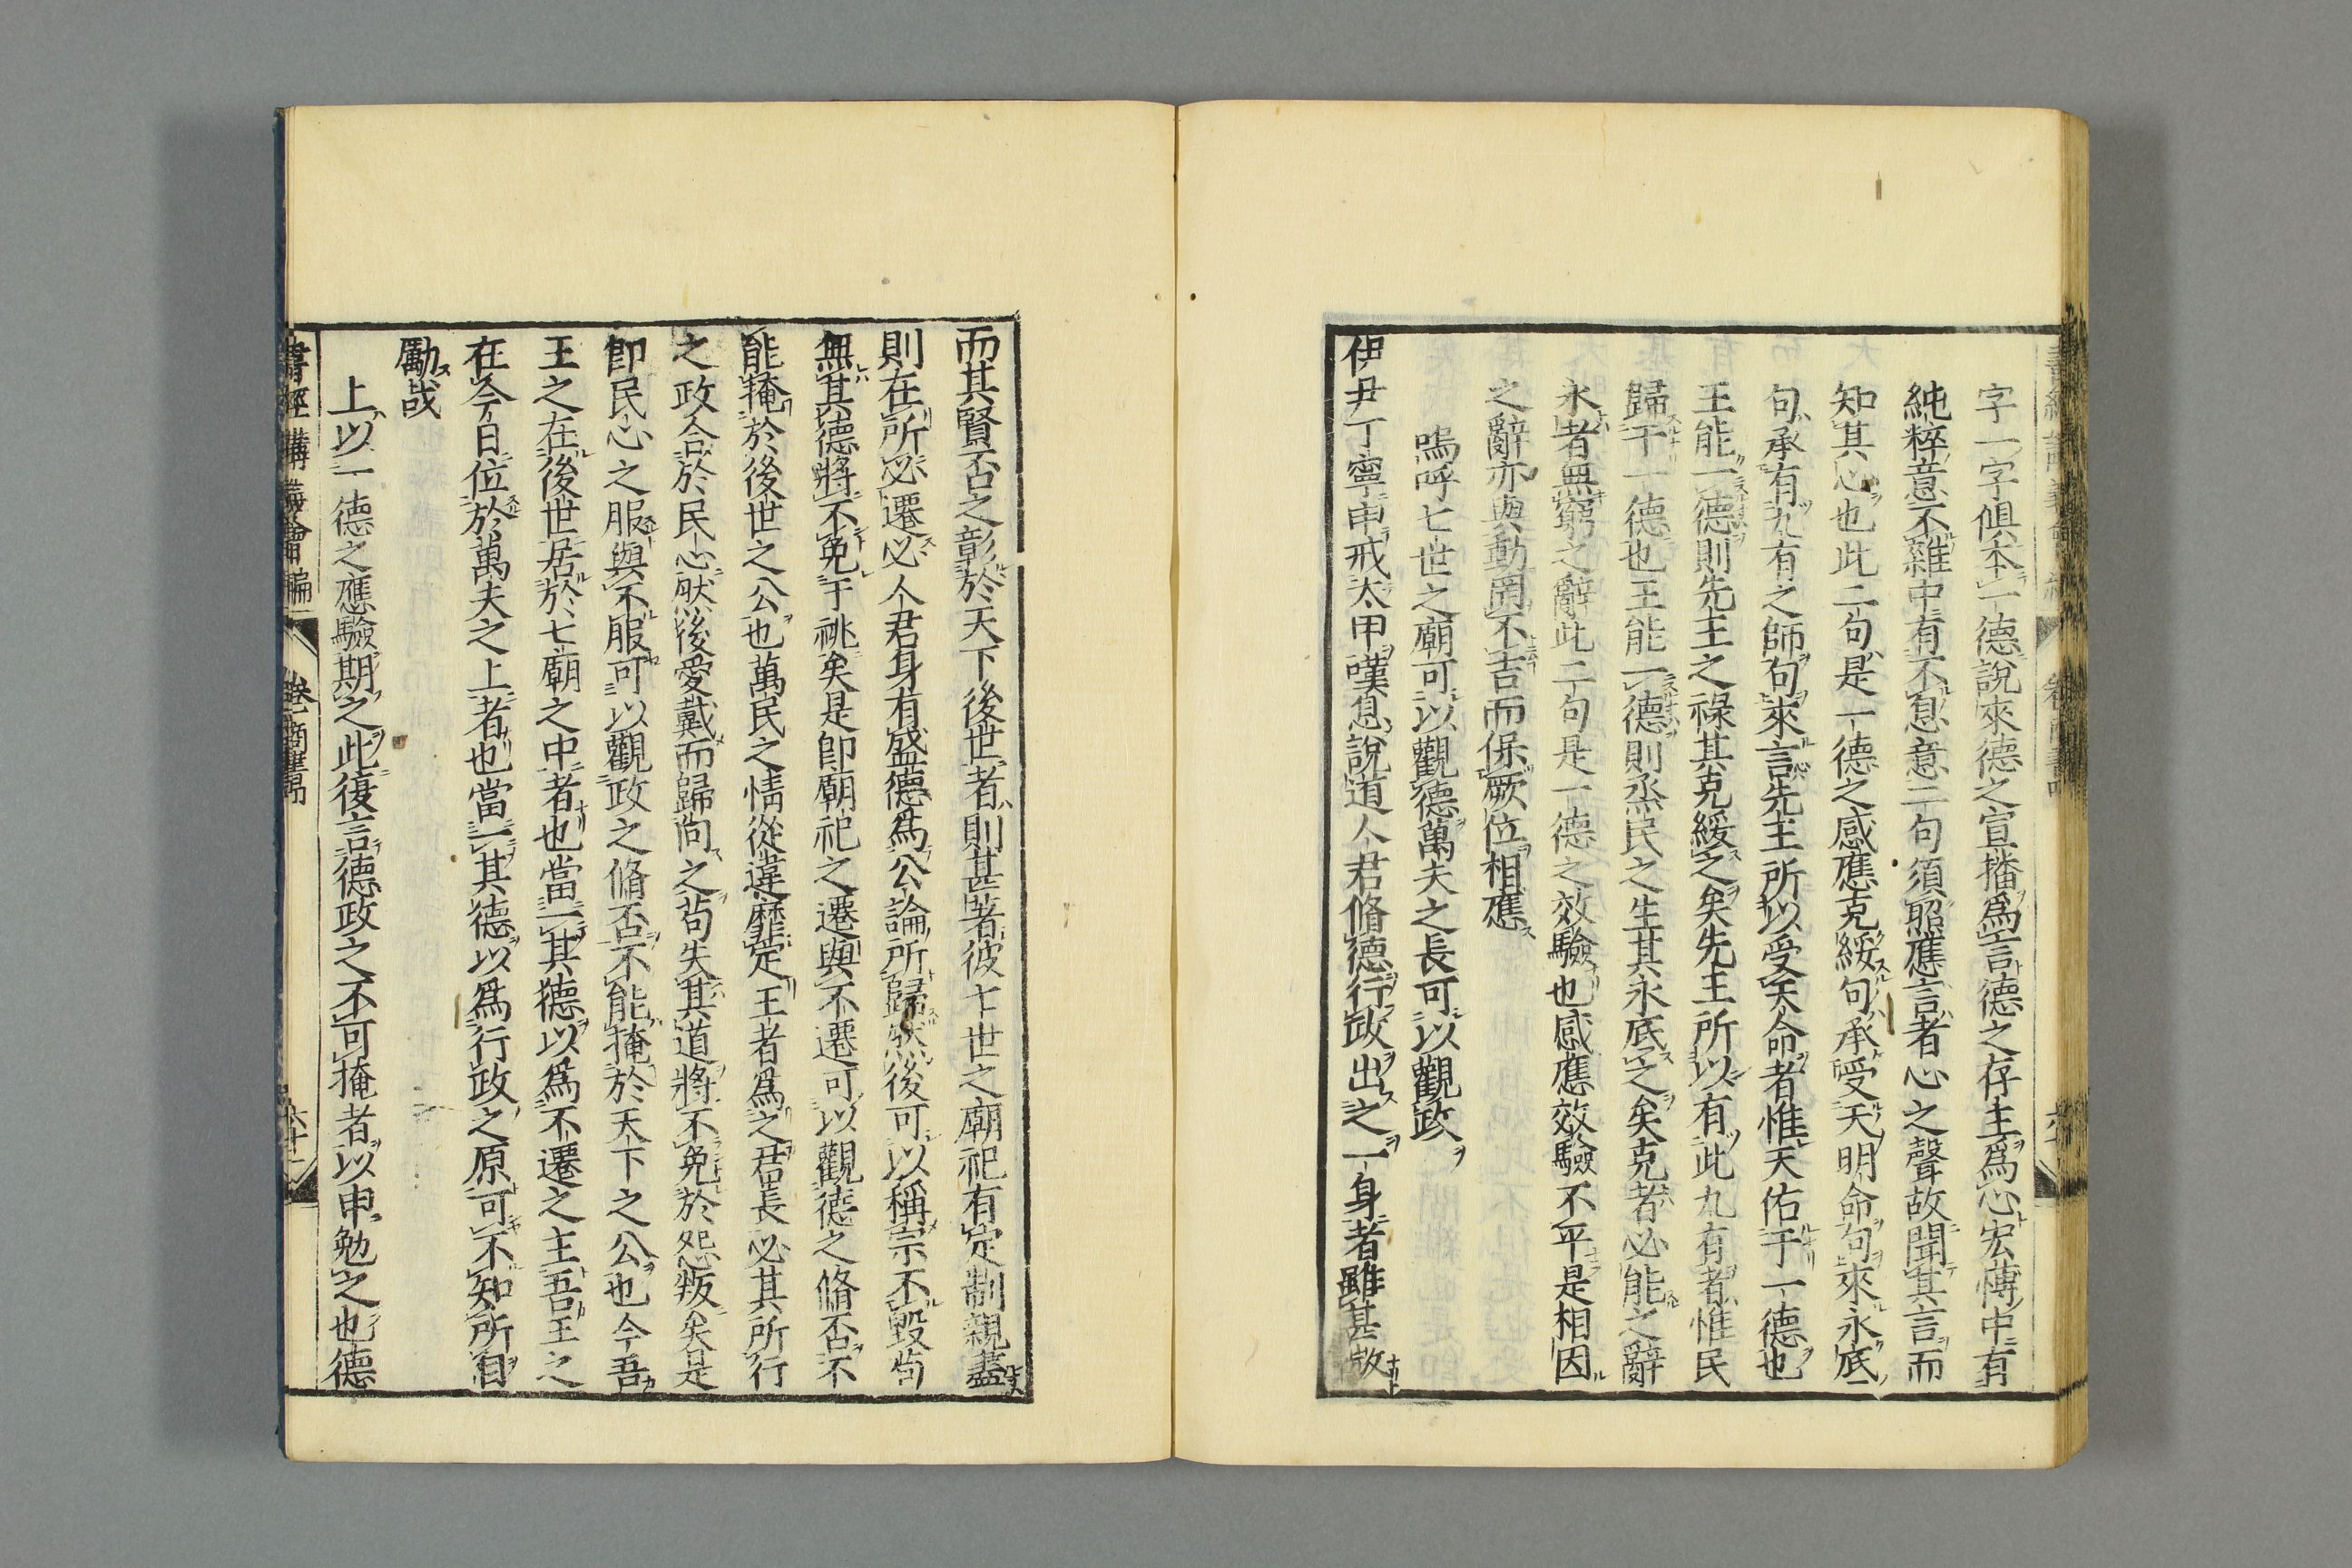 字一字俱本一德說來德之宣播爲言德之存主爲心宏慱中有
純粹意不雜中有不息意二句須照應言者心之聲故聞其言而
知其心也此二句是一德之感應克綏句承受天明命句來永底
句承有九有之師句來言先王所以受天命者惟天佑于一德也
王能一德則先王之祿其克綏之矣先王所以有此九有者惟民
歸于一德也王能一德則烝民之生其永底之矣克者必能之辭
永者無窮之辭此二句是一德之效驗也感應效驗不平是相因
之辭亦與動罔不吉而保厥位相應
嗚呼七世之廟可以觀德萬夫之長可以觀政
伊尹丁寧申戒太甲嘆息說道人君脩德行政出之一身者雖甚微
而其賢否之彰於天下後世者則甚著彼七世之廟祀有定制親盡
則在所必遷必人君身有盛德爲公論所歸然後可以稱宗不毀苟
無其德將不免于祧矣是卽廟祀之遷與不遷可以觀德之脩否不
能掩於後世之公也萬民之情從違靡定王者爲之君長必其所行
之政合於民心然後愛戴而歸向之苟失其道將不免於怨叛矣是
卽民心之服與不服可以觀政之脩否不能掩於天下之公也今吾
王之在後世居於七廟之中者也當一其德以爲不遷之主吾王之
在今日位於萬夫之上者也當一其德以爲行政之原可不知所自
勵哉
上以一德之應驗期之此復言德政之不可掩者以申勉之也德
書經講義會編 卷 商書 六十一